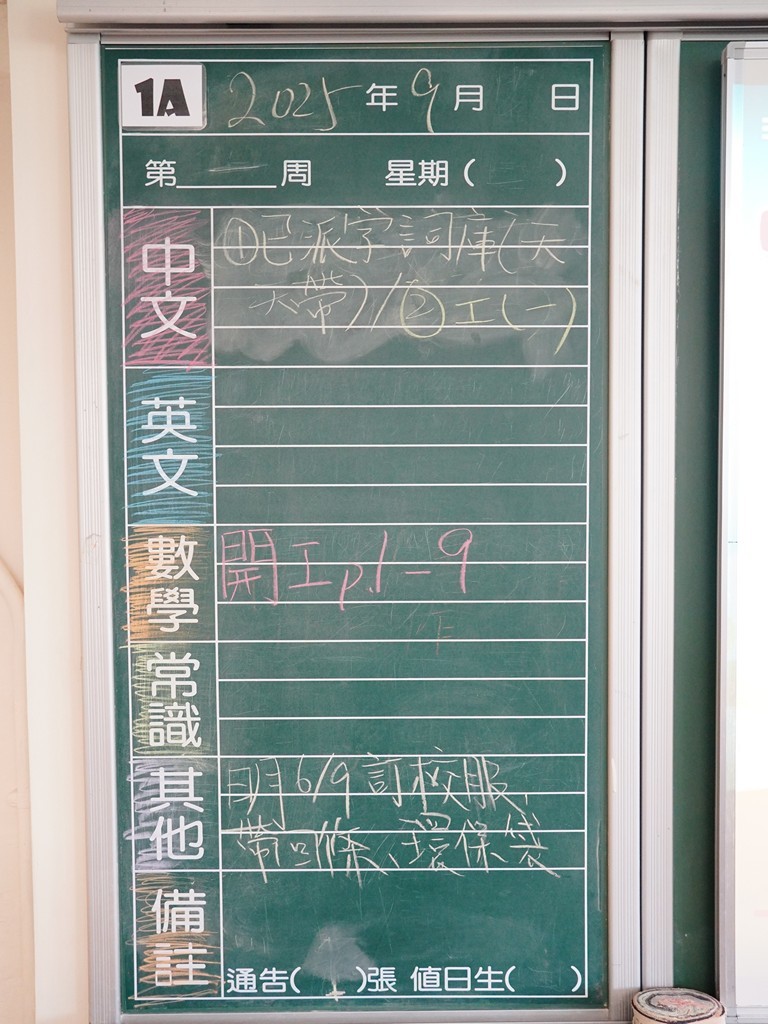 1A 2025年9月 日
第____周 星期( )
中文
①已派字詞庫(天
天帶)/②工(一)
英文
數學
開工p.1-9
常識
其他
明6/9訂校服,
帶回條、環保袋
備註
通告(1)張 值日生( )